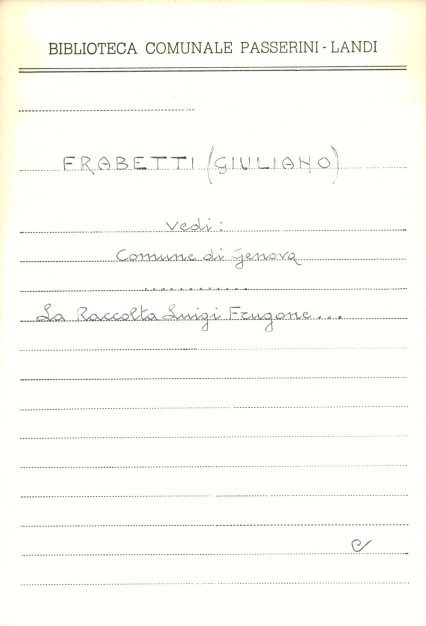 BIBLIOTECA COMUNALE PASSERINI - LANDI
FRABETTI (GIULIANO)
vedi:
Comune di Genova
............
La Raccolta Luigi Frugone...